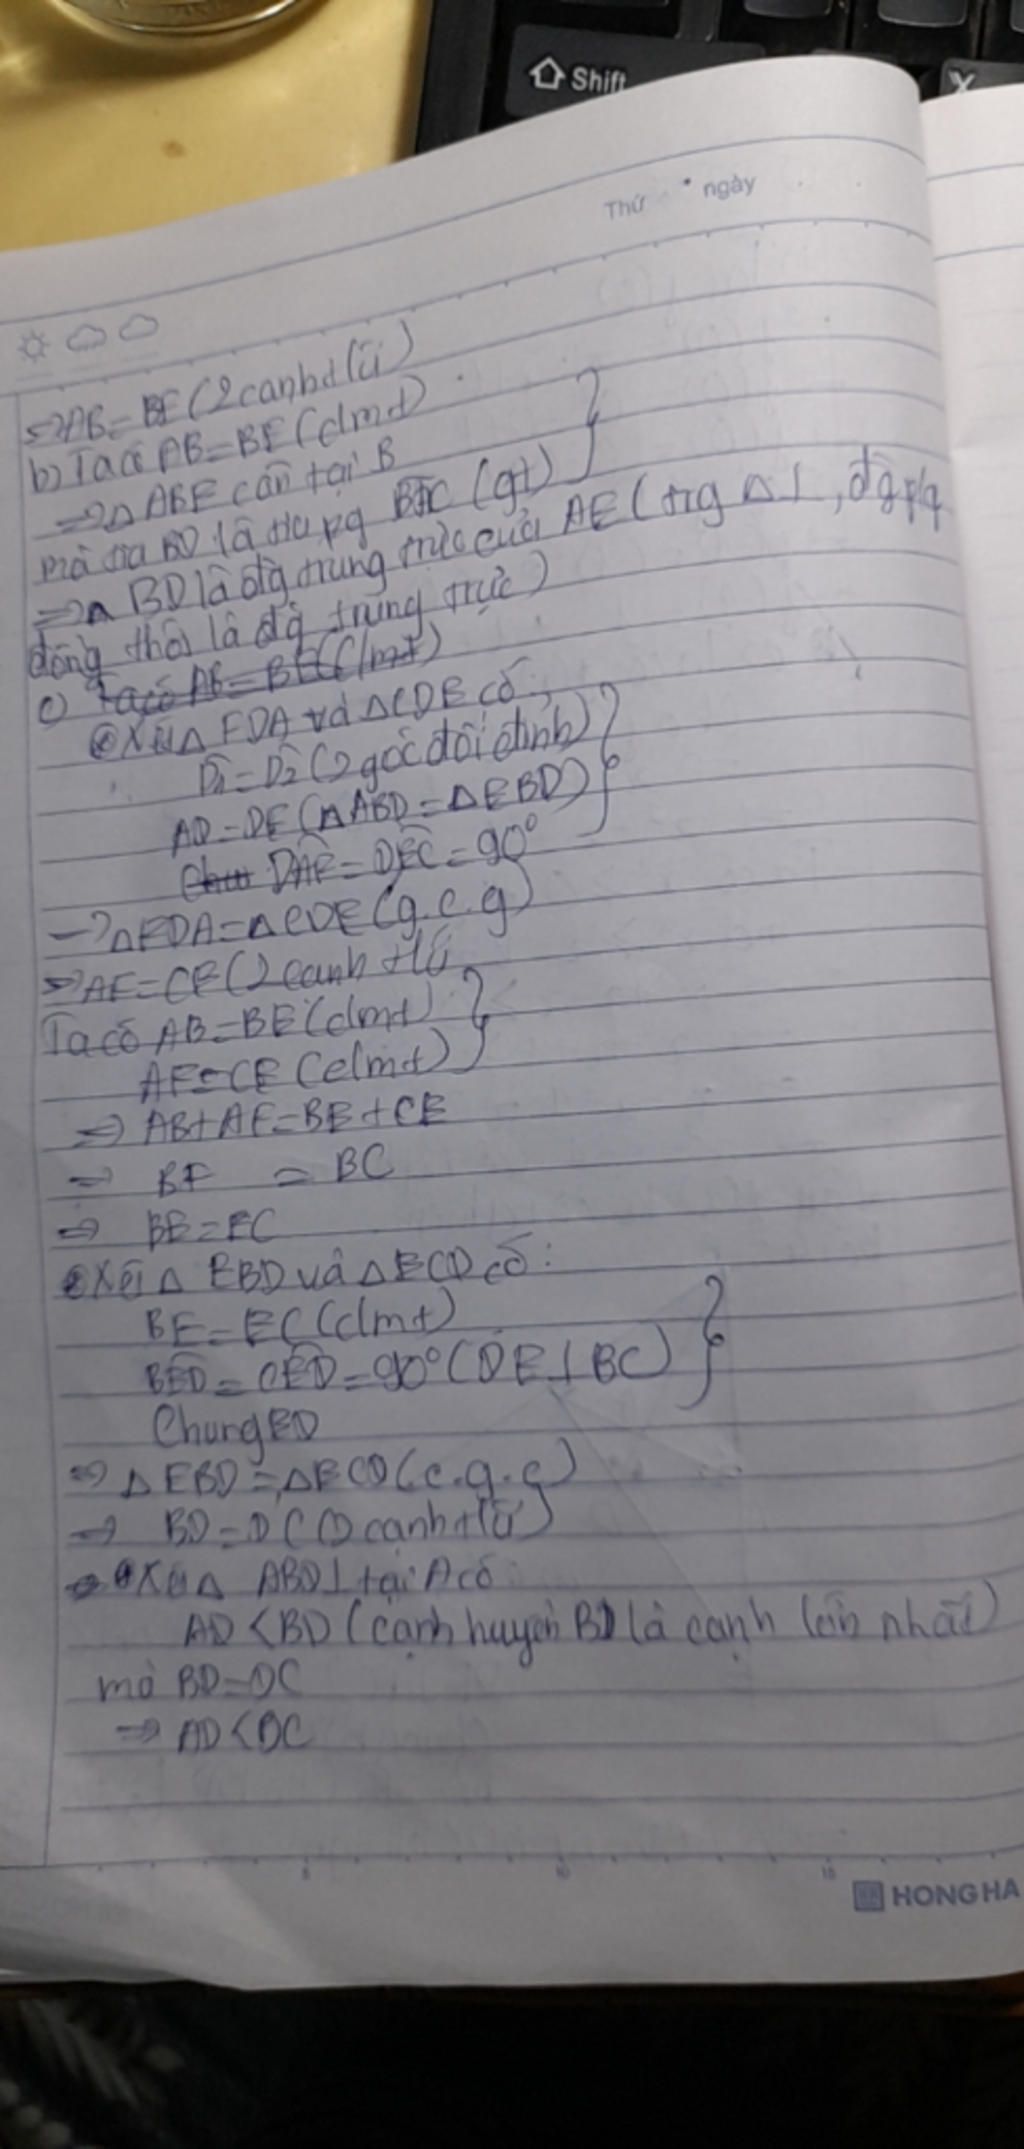 Shift
X
Thứ ngày
=> AB=BE (2 cạnh t/ứ)
b) Ta có AB=BE (clmt)
=> △ ABE cân tại B
mà tia BD là tia pg (gt)
=> BD là đg trung trực của AE (trg △ , đg p/g
đồng thời là đg trung trực)
c) Ta có AB=BE (clmt)
Xét △ FDA và △CDE có:
D1=D2 (2 góc đối đỉnh)
AD=DE (△ABD=△EBD)
DAF=DEC=90°
=> △FDA=△CDE (g.c.g)
=> AF=CE (2 cạnh t/ứ
Ta có AB=BE (clmt)
AF=CE (clmt)
=> AB+AF=BE+CE
=> BF = BC
=> BE=EC
Xét △ EBD và △ECD có:
BE=EC (clmt)
BED=CED=90° (DE⊥BC)
Chung ED
=> △EBD=△ECD (c.g.c)
=> BD=DC (2 cạnh t/ứ)
Xét △ ABD ⊥ tại A có
AD<BD (cạnh huyền BD là cạnh lớn nhất)
mà BD=DC
=> AD<DC
5 10 15
HONG HA